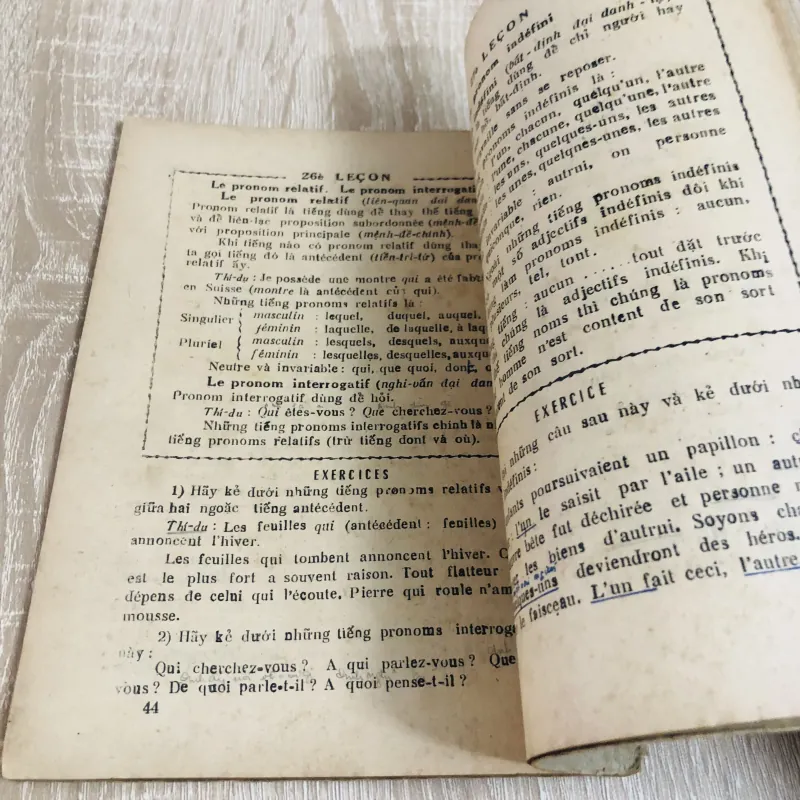 26è LEÇON
Le pronom relatif. Le pronom interrogatif
Le pronom relatif (liên-quan đại dan
Pronom relatif là tiếng dùng để thay thế tiếng
và để liên-lạc proposition subordonnée (mệnh-đề
với proposition principale (mệnh-đề-chính).
Khi tiếng nào có pronom relatif dùng tha
ta gọi tiếng đó là antécédent (tiền-trí-từ) của pro
relatif ấy.
Thí-dụ : Je possède une montre qui a été fabri
en Suisse (montre là antécédent của qui).
Những tiếng pronoms relatifs là :
Singulier { masculin : lequel, duquel, auquel,
féminin : laquelle, de laquelle, à laq
Pluriel { masculin : lesquels, desquels, auxqu
féminin : lesquelles, desquelles, auxqu
Neutre và invariable : qui, que quoi, dont, o
Le pronom interrogatif (nghi-vấn đại dan
Pronom interrogatif dùng để hỏi.
Thí-dụ : Qui êtes-vous ? Que cherchez-vous ?
Những tiếng pronoms interrogatifs chính là nh
tiếng pronoms relatifs (trừ tiếng dont và où).
EXERCICES
1) Hãy kẻ dưới những tiếng pronoms relatifs
giữa hai ngoặc tiếng antécédent.
Thí-dụ : Les feuilles qui (antécédent : feuilles)
annoncent l'hiver.
Les feuilles qui tombent annoncent l'hiver. C
est le plus fort a souvent raison. Tout flatteur
dépens de celui qui l'écoute. Pierre qui roule n'am
mousse.
2) Hãy kẻ dưới những tiếng pronoms interrog
này :
Qui cherchez-vous ? A qui parlez-vous ? Que
vous ? De quoi parle-t-il ? A quoi pense-t-il ?
44
LEÇON
pronom indéfini
fini (bất-định đại danh-từ)
tiếng dùng để chỉ người hay
mà bất-định.
vaille sans se reposer.
pronoms indéfinis là :
l'un, chacun, quelqu'un, l'autre
l'une, chacune, quelqu'une, l'autre
les uns, quelques-uns, les autres
les unes, quelques-unes, les autres
variable : autrui, on personne
conque, rien.
những tiếng pronoms indéfinis
một số adjectifs indéfinis đôi khi
làm pronoms indéfinis : aucun,
usieurs, tel, tout.
tiếng : aucun ..... tout đặt trước
chúng là adjectifs indéfinis. Khi
tiếng noms thì chúng là pronoms
homme n'est content de son sort
nt de son sort.
EXERCICE
những câu sau này và kẻ dưới nh
ndéfinis :
fants poursuivaient un papillon : c
l'un le saisit par l'aile ; un autr
re bête fut déchirée et personne n
les biens d'autrui. Soyons cha
lques-uns deviendront des héros.
le faisceau. L'un fait ceci, l'autre